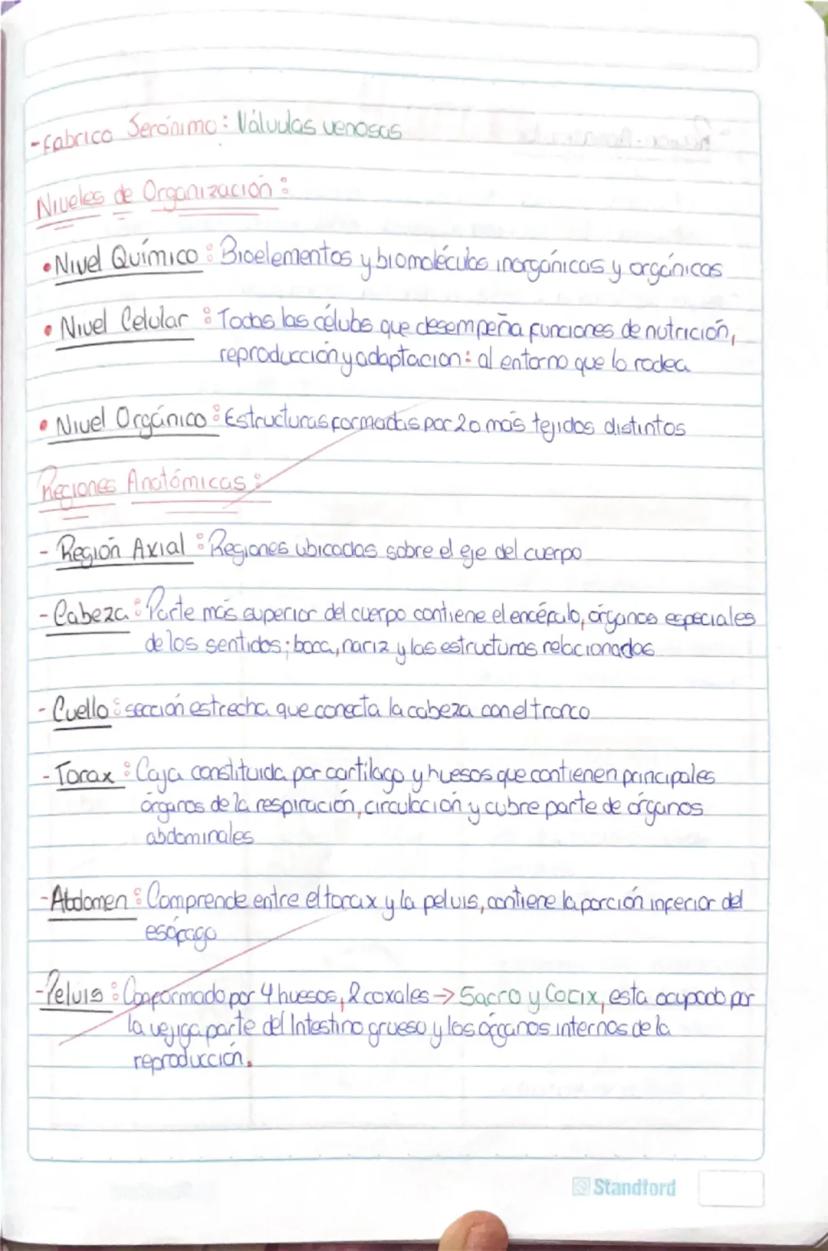 -Fabrico Jerónimo: Válvulas venosas
Niveles de Organización:
• Nivel Químico: Bioelementos y biomoléculas inorgánicas y orgánicas
• Nivel Celular: Todas las células que desempeña funciones de nutrición,
reproducción y adaptacion: al entorno que lo rodea
• Nivel Orgánico: Estructuras formadas por 2 o más tejidos distintos
Regiones Anatómicas:
- Región Axial: Regiones ubicadas sobre el eje del cuerpo
- Cabeza: Parte más superior del cuerpo contiene el encéfalo, órganos especiales
de los sentidos; boca, nariz y las estructuras relacionadas
- Cuello: sección estrecha que conecta la cabeza con el tronco
- Torax: Caja constituida por cartilago y huesos que contienen principales
órganos de la respiración, circulación y cubre parte de órganos
abdominales
- Abdomen: Comprende entre el torax y la pelvis, contiene la porción inferior del
esófago
- Pelvis: Conformado por 4 huesos, 2 coxales → Sacro y Cocix, esta ocupado por
la vejiga parte del Intestino grueso y los órganos internos de la
reproducción.
Standford